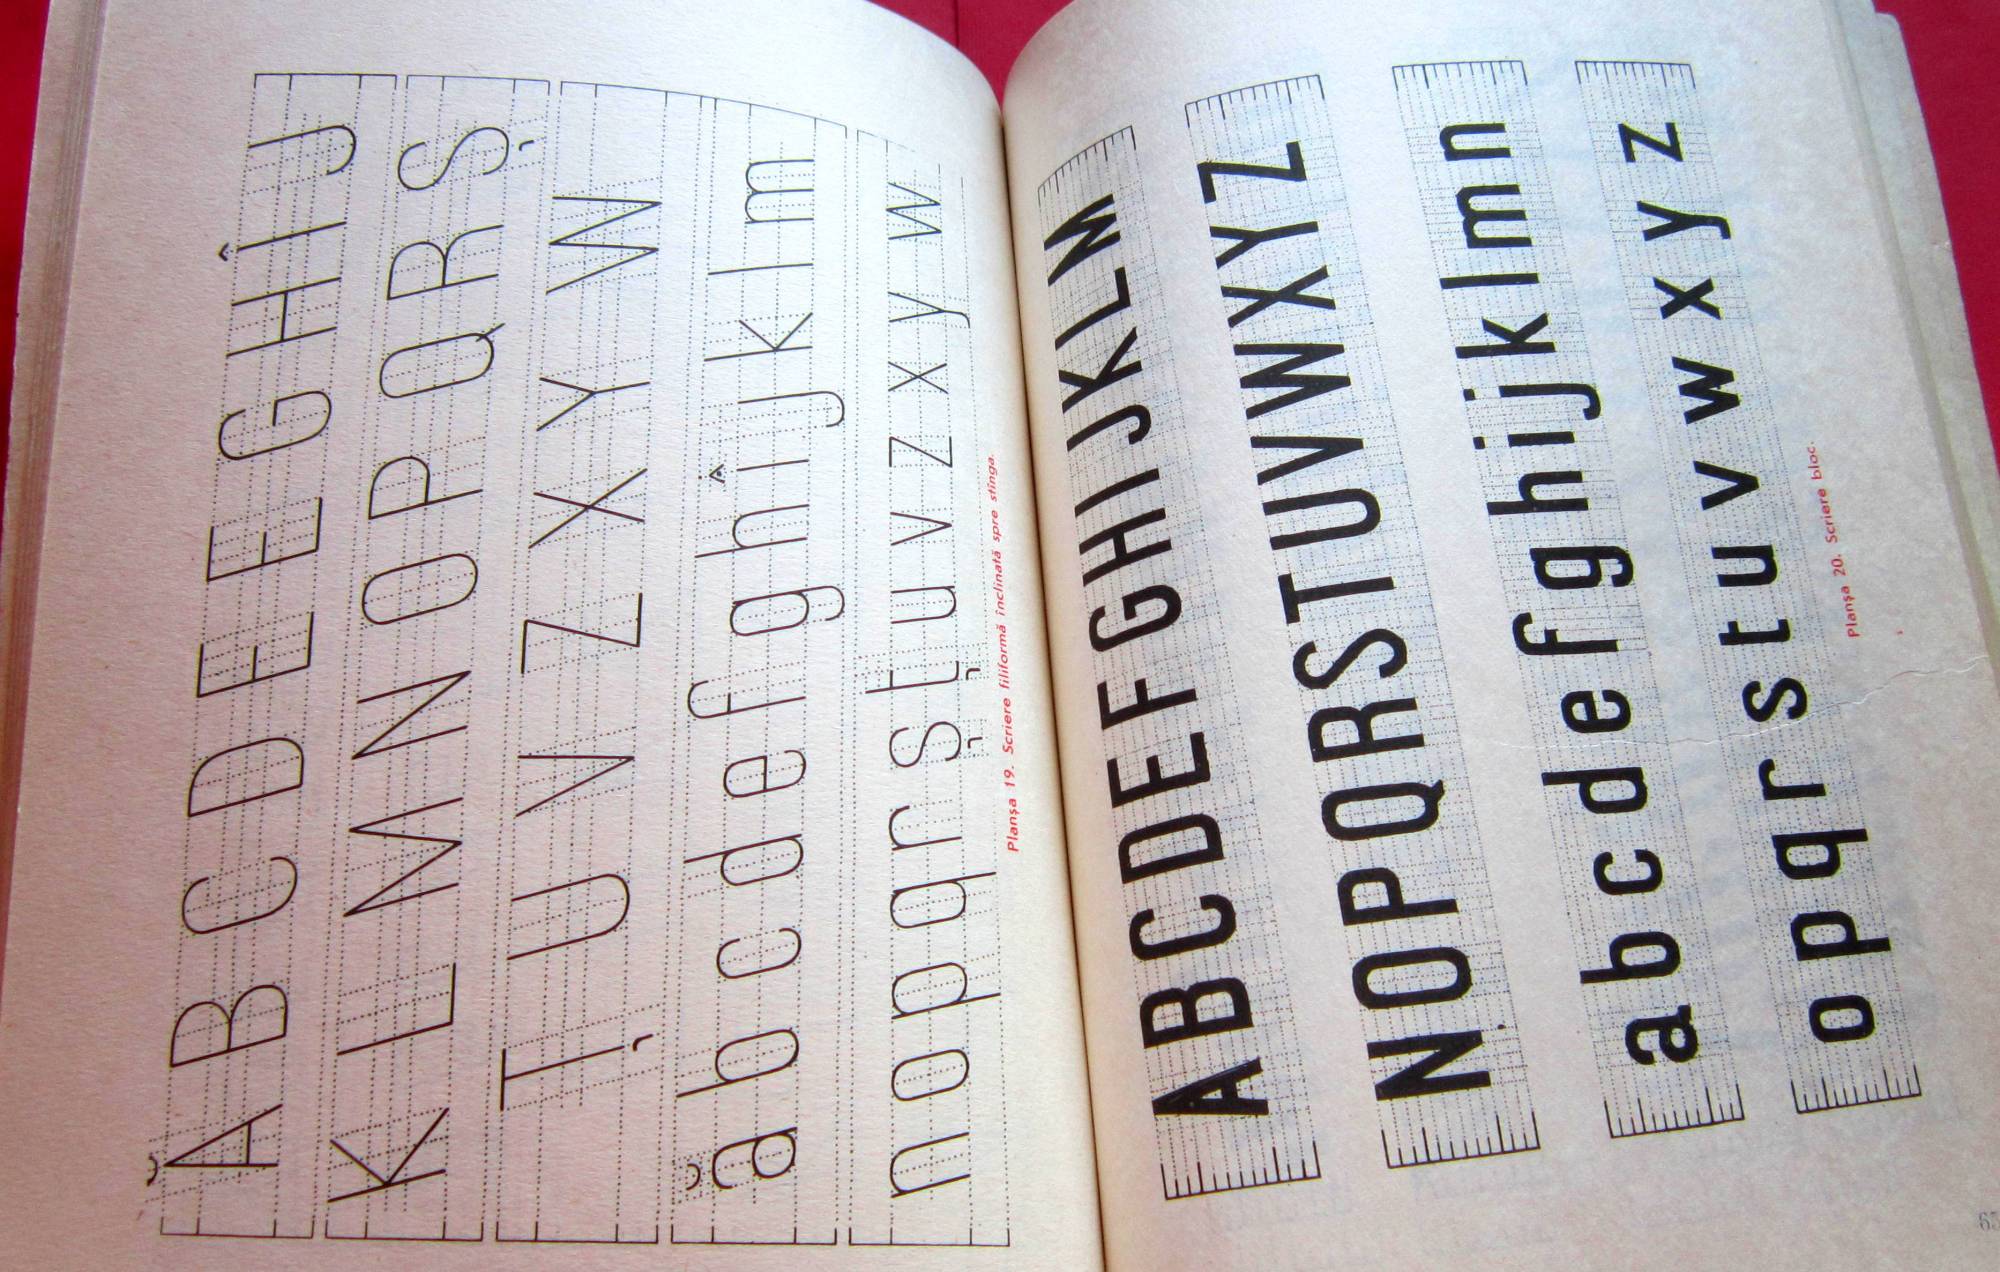 Ă B C D E E G H Î J
K L M N O P Q R Ș
Ț U V Z X Y W
ă b c d e f g h î j k l m
n o p q r ș ț u v z x y w
Planșa 19. Scriere filiformă înclinată spre stînga.
ABCDEFGHIJKLM
NOPQRSTUVWXYZ
a b c d e f g h i j k l m n
o p q r s t u v w x y z
Planșa 20. Scriere bloc.